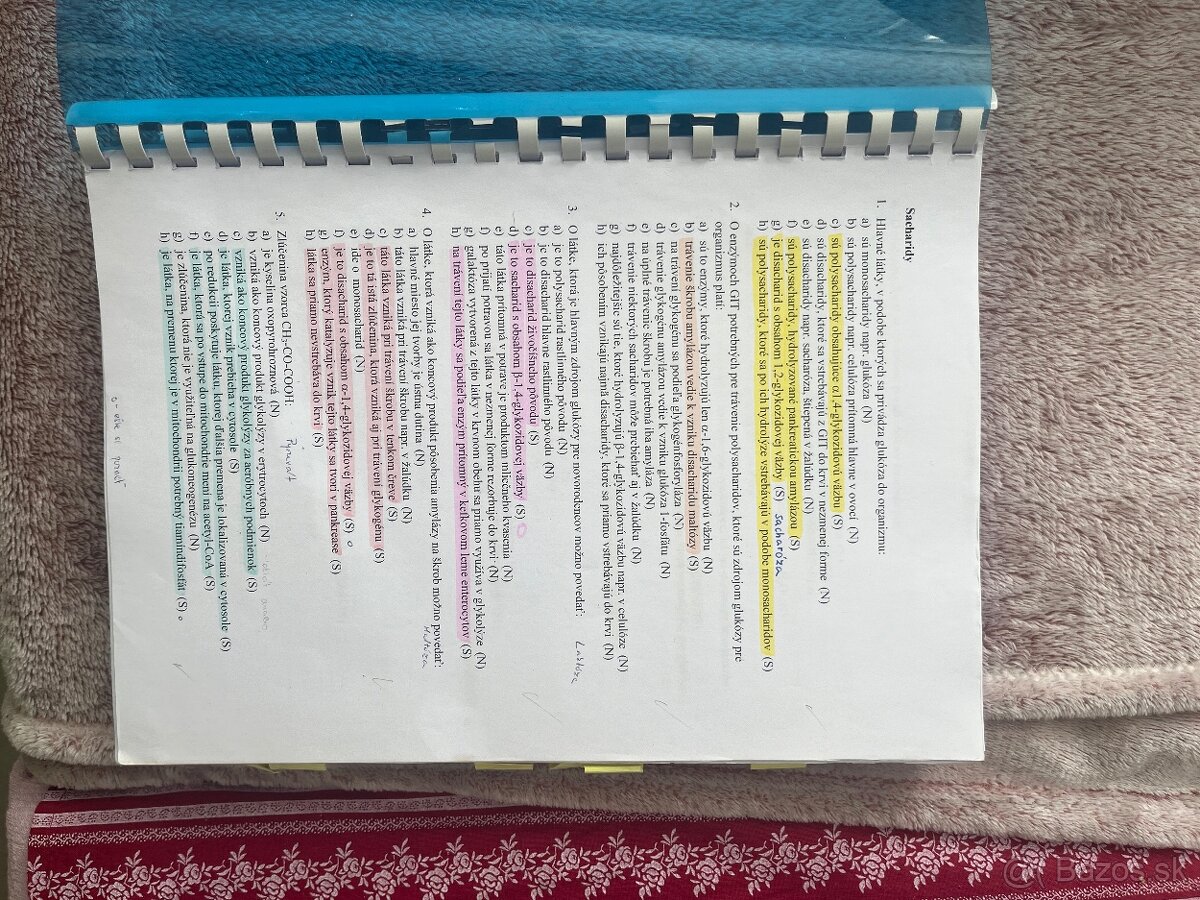 Sacharidy
1. Hlavné látky, v podobe ktorých sa privádza glukóza do organizmu:
a) sú monosacharidy napr. glukóza (N)
b) sú polysacharidy napr. celulóza prítomná hlavne v ovocí (N)
c) sú polysacharidy obsahujúce α1,4-glykozidovú väzbu (S)
d) sú disacharidy, ktoré sa vstrebávajú z GIT do krvi v nezmenej forme (N)
e) sú disacharidy napr. sacharóza, štiepená v žalúdku (N)
f) sú polysacharidy, hydrolyzované pankreatickou amylázou (S)
g) je disacharid s obsahom 1,2-glykozidovej väzby (S) sacharóza
h) sú polysacharidy, ktoré sa po ich hydrolýze vstrebávajú v podobe monosacharidov (S)
2. O enzýmoch GIT potrebných pre trávenie polysacharidov, ktoré sú zdrojom glukózy pre
organizmus platí:
a) sú to enzýmy, ktoré hydrolyzujú len α-1,6-glykozidovú väzbu (N)
b) trávenie škrobu amylázou vedie k vzniku disacharidu maltózy (S)
c) na trávení glykogénu sa podieľa glykogénfosforyláza (N)
d) trávenie glykogénu amylázou vedie k vzniku glukóza 1-fosfátu (N)
e) na úplné trávenie škrobu je potrebná iba amyláza (N)
f) trávenie niektorých sacharidov môže prebiehať aj v žalúdku (N)
g) najdôležitejšie sú tie, ktoré hydrolyzujú β-1,4-glykozidovú väzbu napr. v celulóze (N)
h) ich pôsobením vznikajú najmä disacharidy, ktoré sa priamo vstrebávajú do krvi (N)
3. O látke, ktorá je hlavným zdrojom glukózy pre novorodencov možno povedať: Laktóza
a) je to polysacharid rastlinného pôvodu (N)
b) je to disacharid hlavne rastlinného pôvodu (N)
c) je to disacharid živočíšneho pôvodu (S)
d) je to sacharid s obsahom β-1,4-glykozidovej väzby (S)
e) táto látka prítomná v potrave je produktom mliečneho kvasenia (N)
f) po prijatí potravou sa látka v nezmenej forme rezorbuje do krvi (N)
g) galaktóza vytvorená z tejto látky v krvnom obehu sa priamo využíva v glykolýze (N)
h) na trávení tejto látky sa podieľa enzým prítomný v kefkovom leme enterocytov (S)
4. O látke, ktorá vzniká ako koncový produkt pôsobenia amylázy na škrob možno povedať:
Maltóza
a) hlavné miesto jej tvorby je ústna dutina (N)
b) táto látka vzniká pri trávení škrobu napr. v žalúdku (N)
c) táto látka vzniká pri trávení škrobu v tenkom čreve (S)
d) je to tá istá zlúčenina, ktorá vzniká aj pri trávení glykogénu (S)
e) ide o monosacharid (N)
f) je to disacharid s obsahom α-1,4-glykozidovej väzby (S)
g) enzým, ktorý katalyzuje vznik tejto látky sa tvorí v pankrease (S)
h) látka sa priamo nevstrebáva do krvi (S)
5. Zlúčenina vzorca CH₃-CO-COOH: Pyruvát
a) je kyselina oxopyrohroznová (N)
b) vzniká ako koncový produkt glykolýzy v erytrocytoch (N)
c) vzniká ako koncový produkt glykolýzy za aeróbnych podmienok (S)
d) je látka, ktorej vznik prebieha v cytosole (S)
e) po redukcii poskytuje látku, ktorej ďalšia premena je lokalizovaná v cytosole (S)
f) je látka, ktorá sa po vstupe do mitochondrie mení na acetyl-CoA (S)
g) je zlúčenina, ktorá nie je využiteľná na glukoneogenézu (N)
h) je látka, na premenu ktorej je v mitochondrii potrebný tiamíndifosfát (S)
Bazos.sk